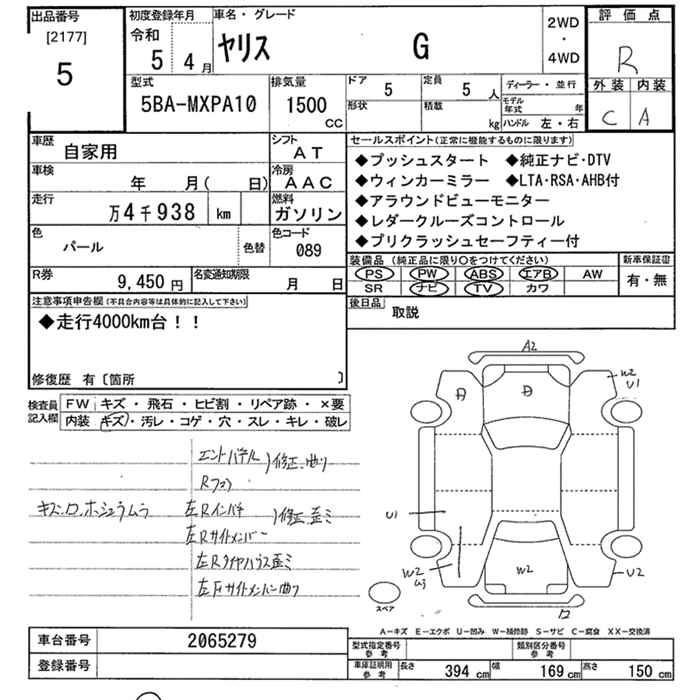 出品番号
[2177]
5
初度登録年月
令和
5 4月
車名・グレード
ヤリス G
2WD
・
4WD
評価点
R
外装 内装
C A
型式
5BA-MXPA10
排気量
1500
CC
ドア
5
定員
5人
形状
積載
kg
ディーラー・並行
モデル年式 年
ハンドル 左・右
車歴
自家用
シフト
AT
車検
年 月( 日)
冷房
AAC
走行
万4千938 km
燃料
ガソリン
色
パール
色替
色コード
089
R券
9,450円
名変通知期限
月 日
セールスポイント(正常に機能するものに限ります)
◆プッシュスタート ◆純正ナビ・DTV
◆ウィンカーミラー ◆LTA・RSA・AHB付
◆アラウンドビューモニター
◆レダークルーズコントロール
◆プリクラッシュセーフティー付
装備品(純正品に限り○をつけてください)
PS PW ABS エアB AW
SR ナビ TV カワ
新車保証書
有・無
後日品
取説
注意事項申告欄(不具合内容等は具体的に記入して下さい)
◆走行4000km台!!
修復歴 有〔箇所 〕
検査員記入欄
FW キズ・飛石・ヒビ割・リペア跡・×要
内装 キズ・汚レ・コゲ・穴・スレ・キレ・破レ
エンドパネル
修正、曲リ
Rフロア
左Rインパネ
修正、歪ミ
左Rサイドメンバー
左Rタイヤハウス歪ミ
左Fサイドメンバー曲リ
A2
W2
U1
U1
W2
U3
W2
U2
スペア
A−キズ E−エクボ U−凹み W−補修跡 S−サビ C−腐食 XX−交換済
車台番号
2065279
登録番号
型式指定番号
参考
類別区分番号
参考
車庫証明用
参考
長さ 394 cm 幅 169 cm 高さ 150 cm